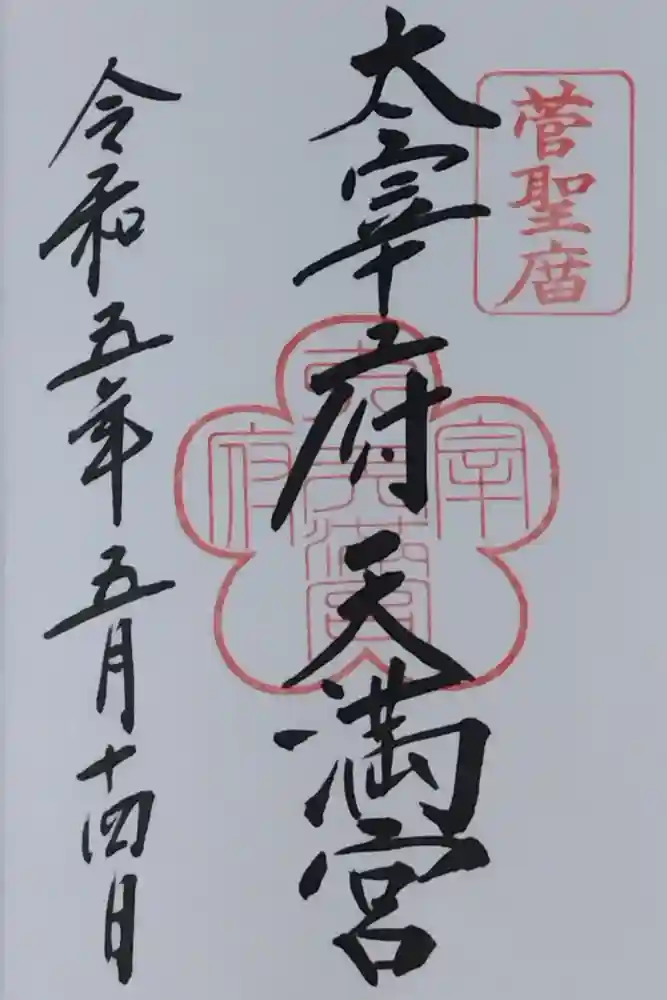 菅聖庿
太宰府天満宮
令和五年五月十四日